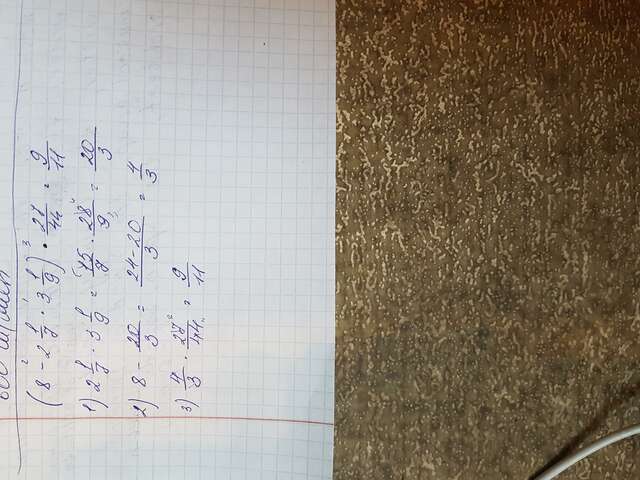 (8 - 2 1/7 · 3 1/9) · 27/44 = 9/11
1) 2 1/7 · 3 1/9 = 15/7 · 28/9 = 20/3
2) 8 - 20/3 = 24-20/3 = 4/3
3) 4/3 · 27/44 = 9/11